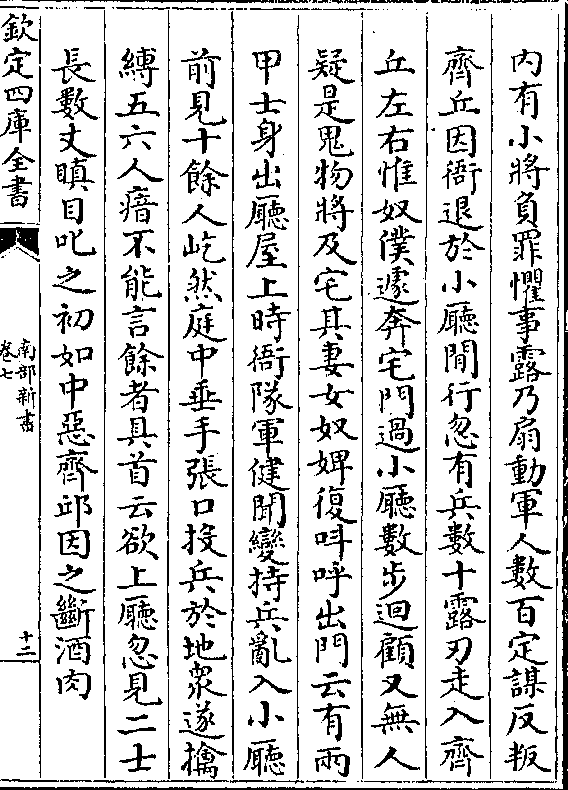 内有小將負罪懼事露乃扇動軍人數百定謀反叛
齊丘因衙退於小廳閒行忽有兵數十露刃走入齊
丘左右惟奴僕遽奔宅門過小廳數步迴顧又無人
疑是鬼物將及宅其妻女奴婢復呌呼出門云有兩
甲士身出廳屋上時衙隊軍健聞變持兵亂入小廳
前見十餘人屹然庭中垂手張口投兵於地衆遂擒
縛五六人瘖不能言餘者具首云欲上廳忽見二士
長數丈瞋目叱之初如中惡齊邱因之斷酒肉
欽定四庫全書
南部新書
卷七
十二